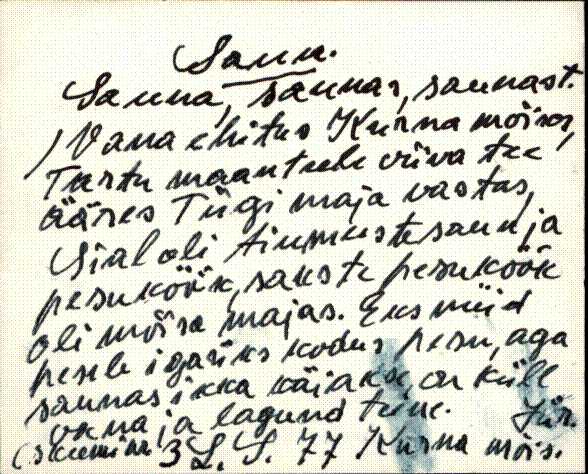 Saun.
Sauna, saunas, saunast.
) Vana ehitus Kurna mõisas,
Tartu maantele viiva tee
ääres Tiigi maja vastas,
Sial oli ainmuste saun ja
pesuköök, sakste pesuköök
oli mõisa majas. Eks nüid
peseb igaüks kodus pesu, aga
saunas ikka käiakse, on küll
vana ja lagund teine. Jür.
3 L. S. 77 Kurna mõis.